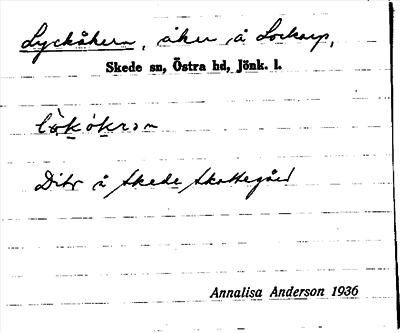 Lyckåkern, åker å Lockarp,
Skede sn, Östra hd, Jönk. l.
Dito å Skede Skattegård
Annalisa Anderson 1936